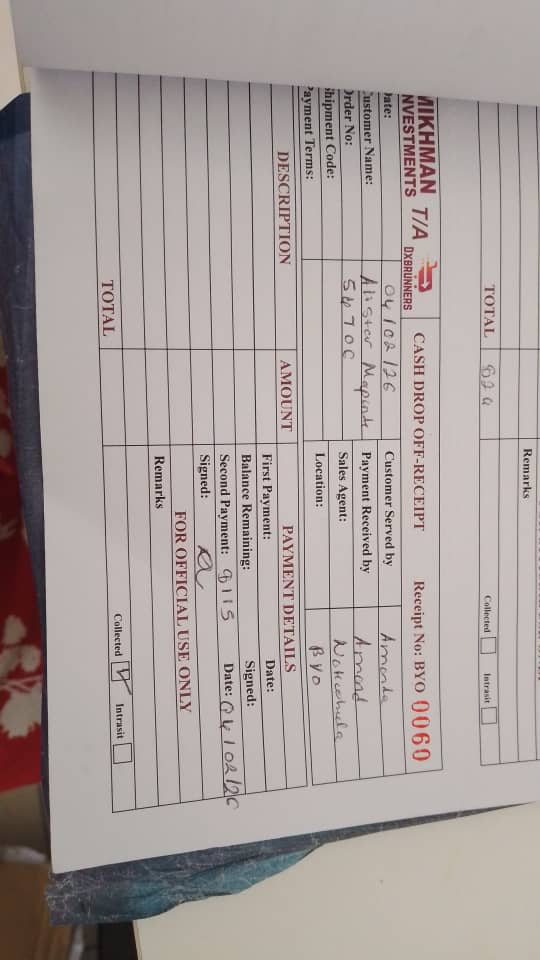 Remarks
TOTAL $20
Collected Intrasit
MIKHMAN T/A DXBRUNNERS
NVESTMENTS
CASH DROP OFF-RECEIPT Receipt No: BYO 0060
ate: 04/02/26 Customer Served by Amanda
ustomer Name: Alister Payment Received by Amand
rder No: 54706 Sales Agent:
hipment Code: Location: BYO
ayment Terms:
DESCRIPTION AMOUNT PAYMENT DETAILS
First Payment: Date:
Balance Remaining: Signed:
Second Payment: $115 Date: 04/02/26
Signed:
FOR OFFICIAL USE ONLY
Remarks
TOTAL
Collected Intrasit